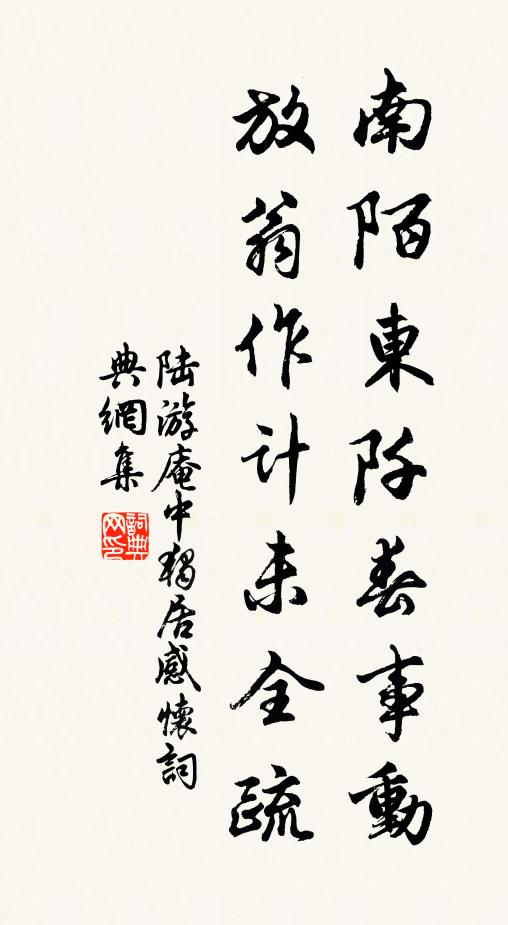 南陌東阡春事動
放翁作计未全疏
陆游庵中獨居感懷詞
典網集
詞典
网印